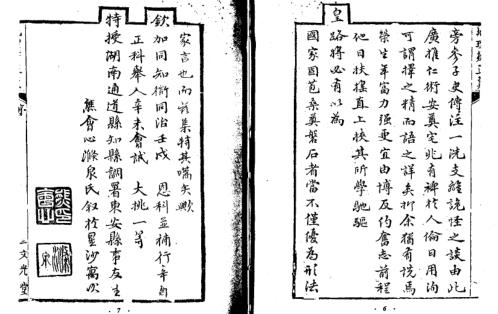 旁參子史傳注一洗支離詭怪之談由此
廣推仁術安奠宅兆有裨於人倫日用洵
可謂擇之精而語之詳矣抑余猶有說焉
榮生年富力强更宜由博反約奮志前程
他日扶搖直上挾其所學馳驅
皇路將必有以為
國家固苞桑奠磐石者當不僅優為形法
·6·
家言也而茲集特其嚆矢歟
欽加同知銜同治壬戌 恩科並補行辛酉
正科舉人辛未會試 大挑一等
特授湖南通道縣知縣調署東安縣事友生
熊會心滌泉氏叙於星沙寓次
文光堂
·7·